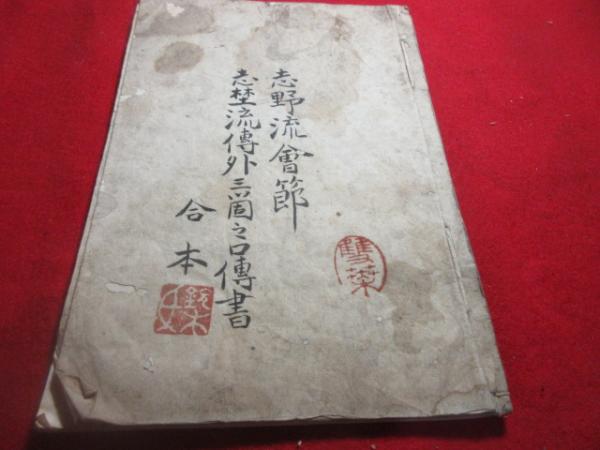 志野流會節
志埜流傳外三箇之口傳書
合本
雙葉
鈴木